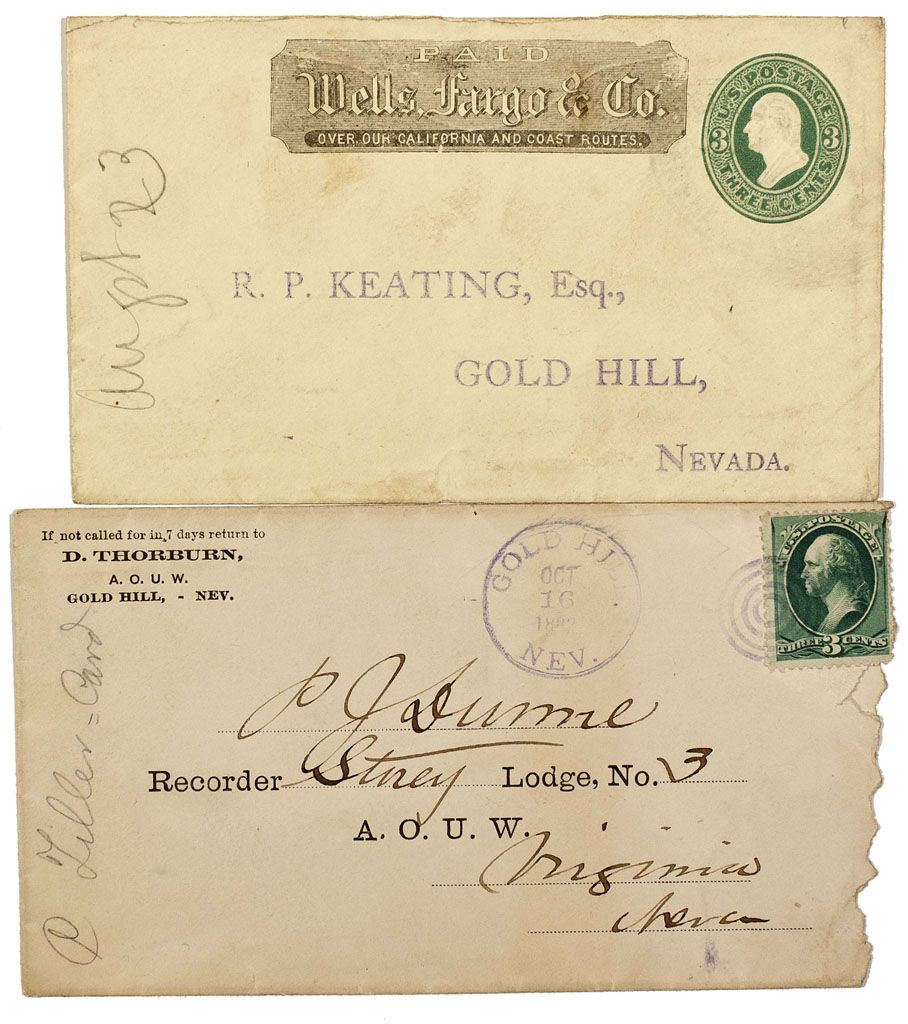 PAID
Wells, Fargo & Co.
OVER OUR CALIFORNIA AND COAST ROUTES.
U.S. POSTAGE
3 3
THREE CENTS
Augst 23
R. P. KEATING, Esq.,
GOLD HILL,
NEVADA.
If not called for in 7 days return to
D. THORBURN,
A. O. U. W.
GOLD HILL, - NEV.
GOLD HIL
OCT
16
188
NEV.
U.S. POSTAGE
THREE 3 CENTS
P J Dunne
Recorder Storey Lodge, No. 3
A. O. U. W.
Virginia
Neva
P Tiller = Card